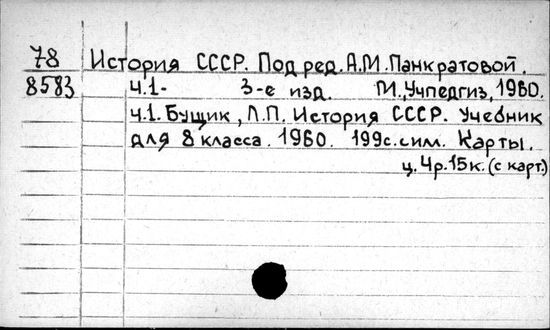 78 История СССР. Под ред. А.М. Панкратовой.
8583 Ч.1- 3-е изд. М., Учпедгиз, 1960.
Ч.1. Бущик, Л.П. История СССР. Учебник
для 8 класса. 1960. 199с. с ил. Карты.
ц. 4р.15к. (с карт.)